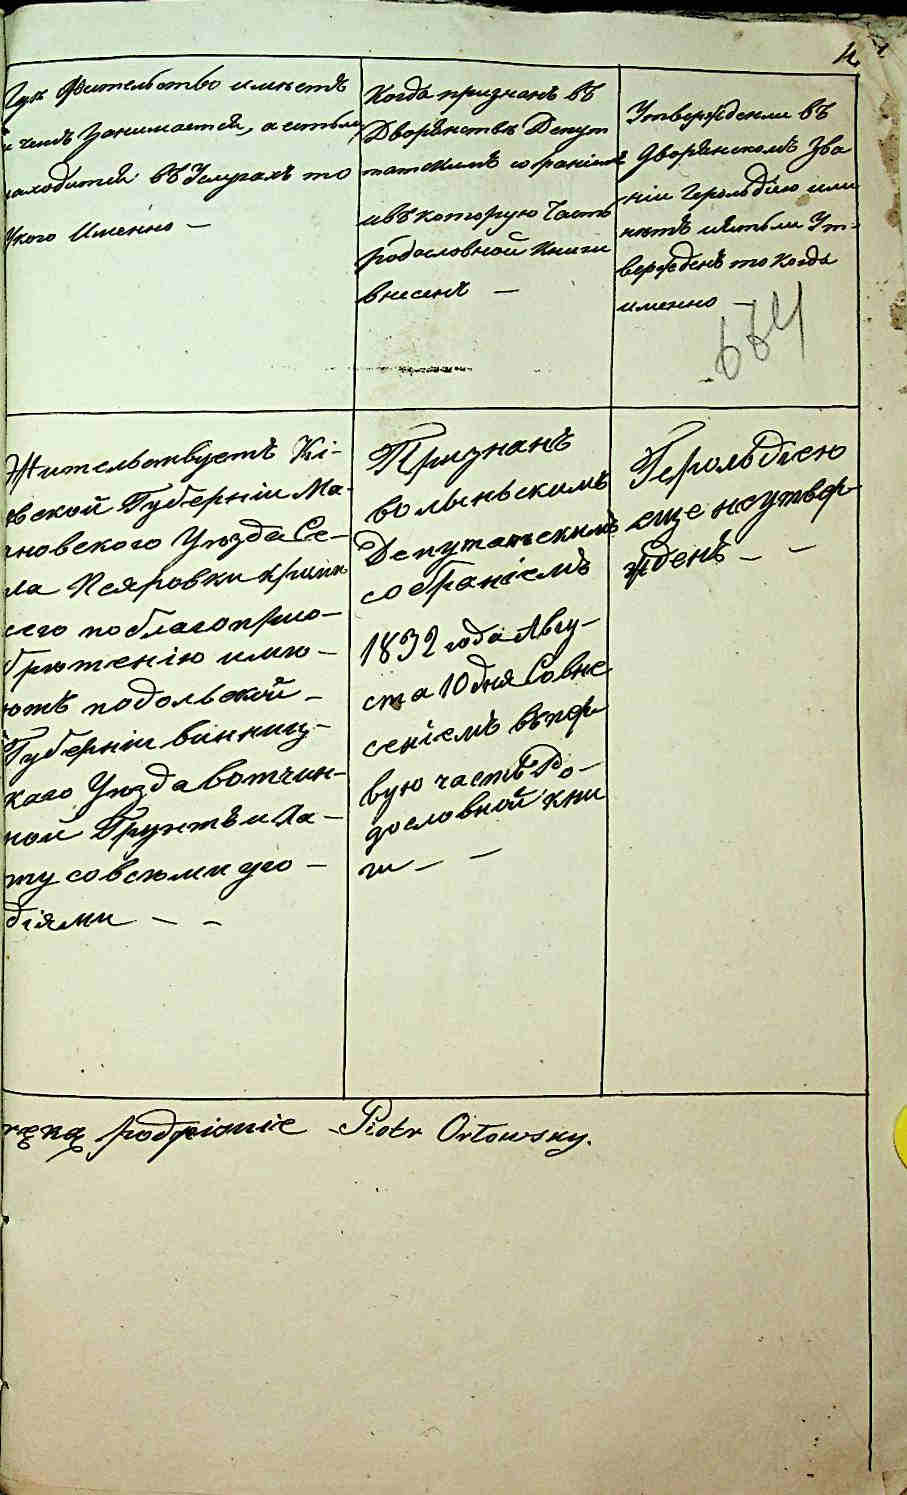 4
Гдѣ Жительство имѣетъ
и чемъ Занимается, а естьли
находится въ Услугахъ то
у кого Именно —
Когда признанъ въ
Дворянствѣ Депут
татскимъ собраніемъ
и въ которую Часть
родословной Книги
внесенъ —
Утвержденъ ли въ
Дворянскомъ Зва
ніи Герольдіею или
нѣтъ и естьли Ут-
вержденъ то Когда
именно —
674
Жительствуетъ Кі-
евской Губерніи Ма-
хновского Уѣзда Се-
ла Псяровки
сего по благопріо-
брѣтенію имѣ-
етъ подольской —
Губерніи винниц-
каго Уѣзда вотчин-
ной Грунтъ и Ха-
ту со всѣми уго —
діями — —
Признанъ
волыньскимъ
Депутатскимъ
собраніемъ
1832 года Авгу-
ста 10 дня Совне
сеніемъ въ пер
вую часть Ро-
дословной кни
ги — —
Герольдіею
еще неутвер
жденъ — —
ręką podpisanie Piotr Orłowsky.